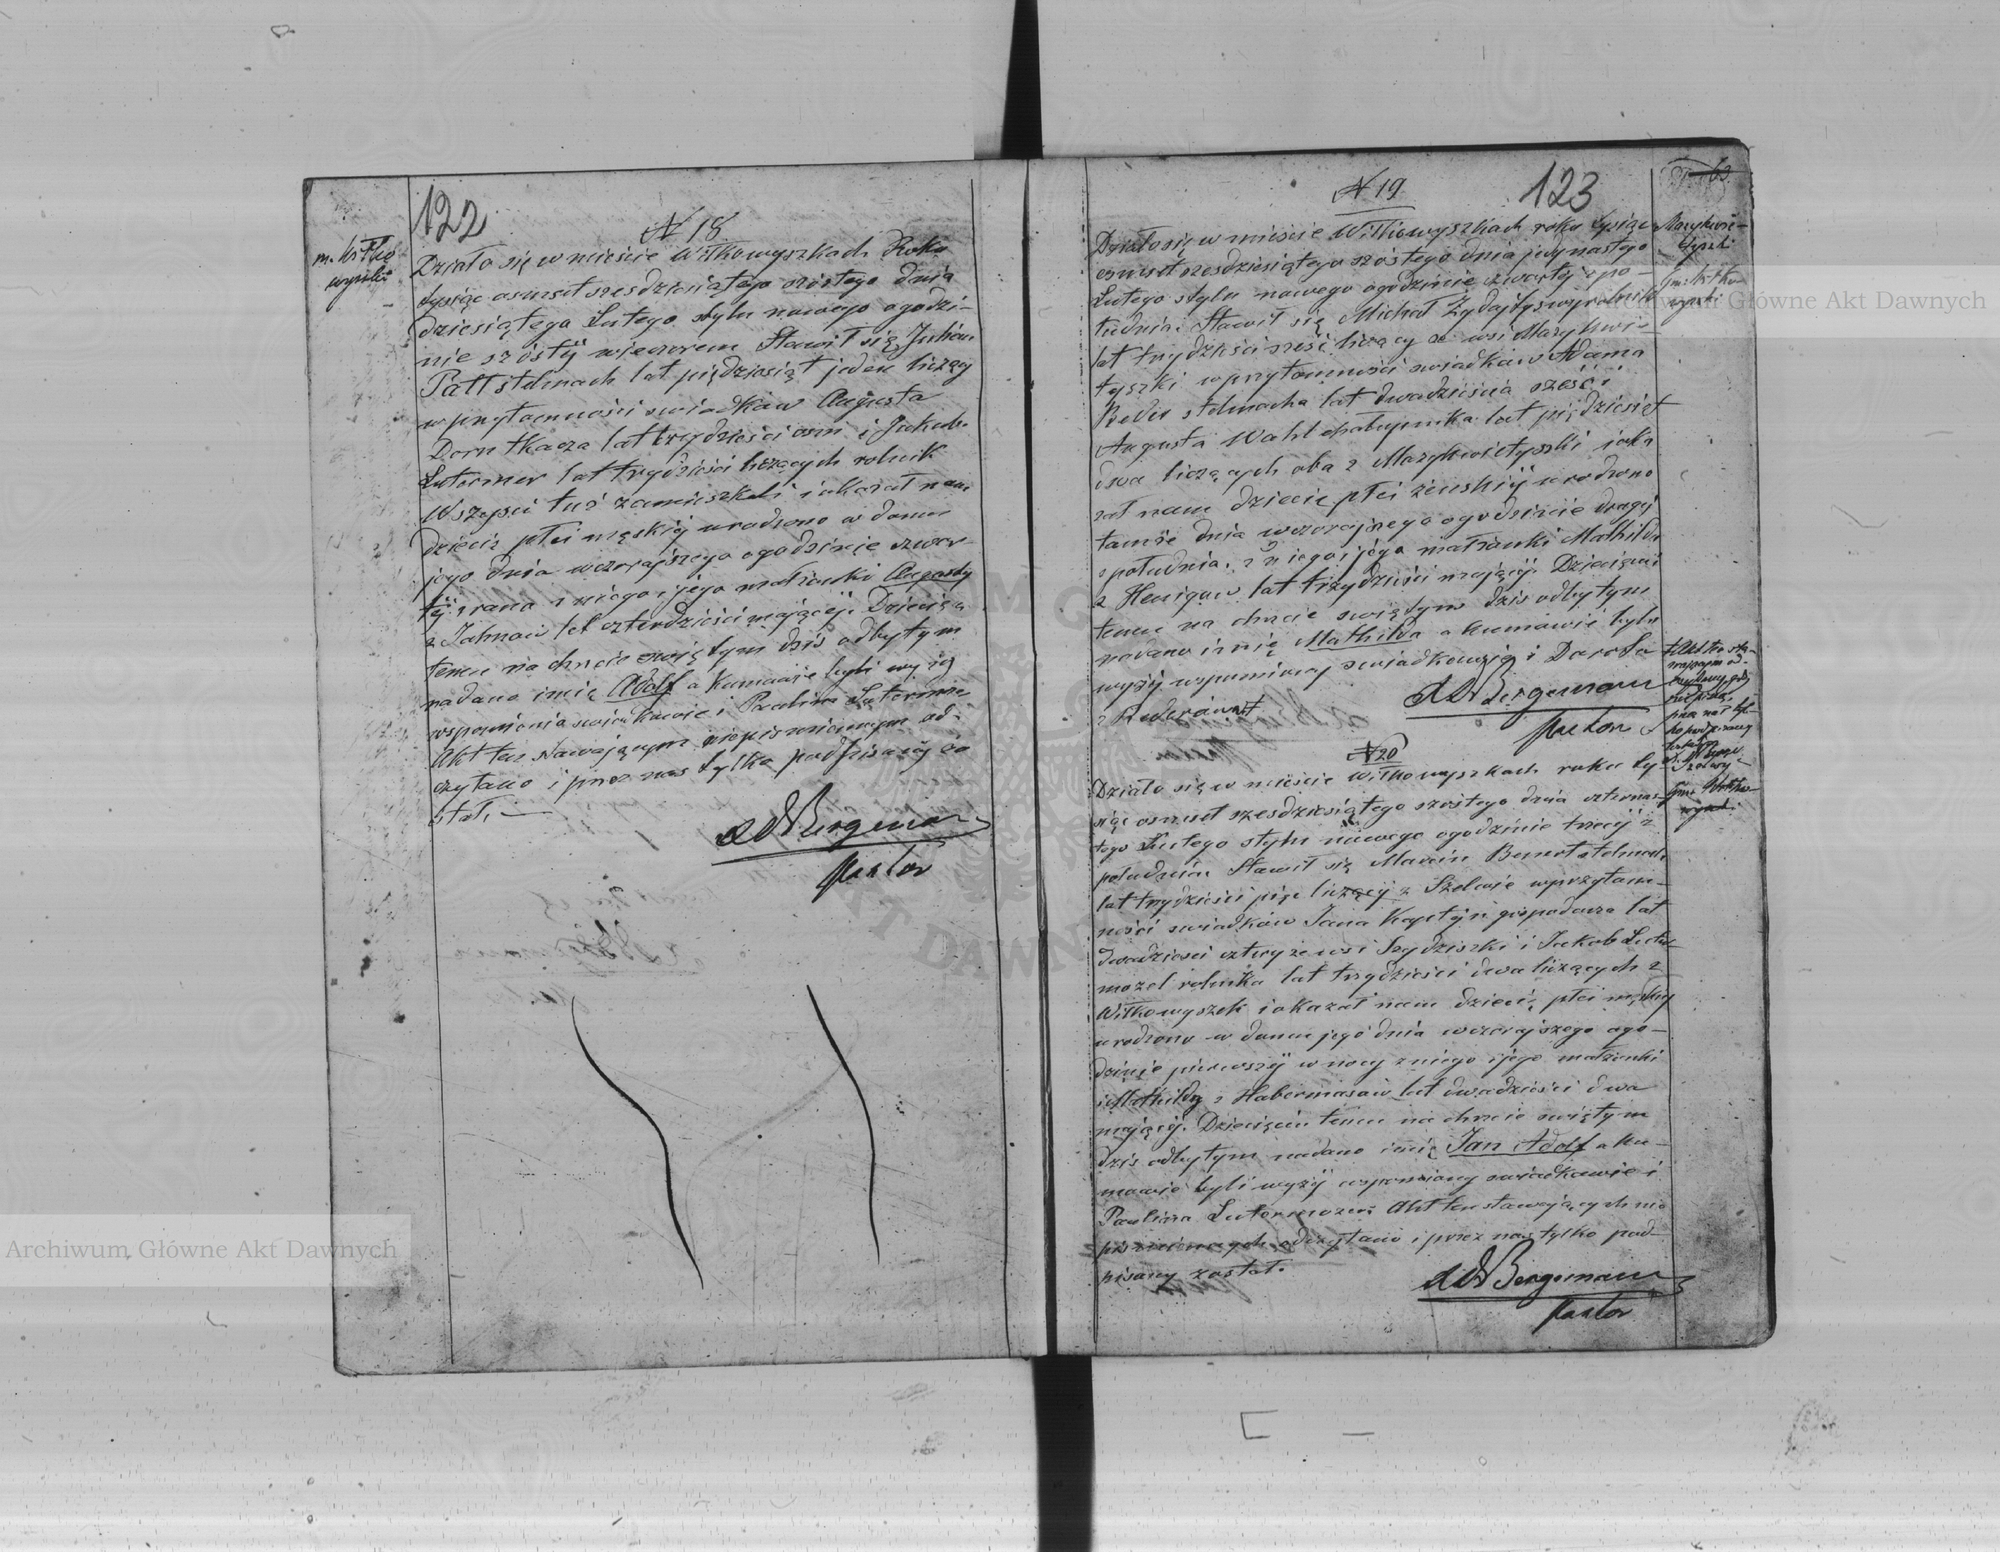 122
N 18
m. Wiłko
wyszki
Działo się w mieście Wiłkowyszkach Roku
tysiąc osmset szesdziesiątego szóstego dnia
dziesiątego Lutego stylu nowego ogodzi-
nie szóstéj wieczorem Stawił się Julian
Patt stelmach lat pięдziesiąt jeden liczący
w przytomności swiadków Augusta
Dorn tkacza lat trzydzieści osm i Jakub
Lutermer lat trzydzieści liczących rolnik
Wszyscy tuż zamieszkali i okazał nam
dziecię płci męskiéj urodzone w domu
jego dnia wczorajszego ogodzinie czwar-
téj z rana z niego i jego małżonki Augusty
z Jahnów lat czterdzieści mającéj. Dziecięciu
temu na chrzcie świętym dziś odbytym
nadano imię Adolf a kumowie byli wyżej
wspomnieni swiadkowie i Paulina
Akt ten stawającym niepismiennym od-
czytano i przez nas tylko podpisany zo
stał.
Bergemann
Pastor
123
N 19
Działo się w mieście Wiłkowyszkach roku tysiąc
osmset szesdziesiątego szóstego dnia jedynastego
Lutego stylu nowego ogodzinie czwartéj z po-
łudnia. Stawił się Michał
lat trzydzieści sześć liczący ze wsi Marykwi-
tyszki w przytomności swiadków Adama
Reder stelmacha lat dwadzieścia sześć i
Augusta Wahl chałupnika lat pięćdziesiąt
dwa liczących oba z Marykwietyszki i oka
zał nam dziecię płci żeńskiéj urodzone
tamże dnia wczorajszego ogodzinie drugiéj
z południa, z niego i jego małżonki Mathildy
z Henigów lat trzydzieści mającéj. Dziecięciu
temu na chrzcie świętym dziś odbytym
nadano imię Mathilda a kumowie byli
wyżéj wspomniany swiadkowie i Dorota
Bergemann
Pastor
N 20
Działo się w mieście Wiłkowyszkach roku ty-
siąc osmset szesdziesiątego szóstego dnia czternas-
tego Lutego stylu nowego ogodzinie trzeciéj z
południa Stawił się Marcin stelmach
lat trzydzieści pięć liczący z Szelwie w przytom-
ności swiadków Jana gospodarza lat
dwadzieścia cztery ze wsi i Jakob
rolnika lat trzydzieści dwa liczących z
Wiłkowyszek i okazał nam dziecię płci męskiéj
urodzone w domu jego dnia wczorajszego ogo-
dzinie pierwszéj w nocy z niego i jego małżonki
Mathildy z Habermanów lat dwadzieścia dwa
mającéj. Dziecięciu temu na chrzcie świętym
dziś odbytym nadano imię Jan Adolf a ku-
mowie byli wyżéj wspomniany swiadkowie i
Paulina Akt ten stawających nie
pismiennych odczytano i przez nas tylko pod-
pisany został.
Bergemann
Pastor
Archiwum Główne Akt Dawnych
Archiwum Główne Akt Dawnych